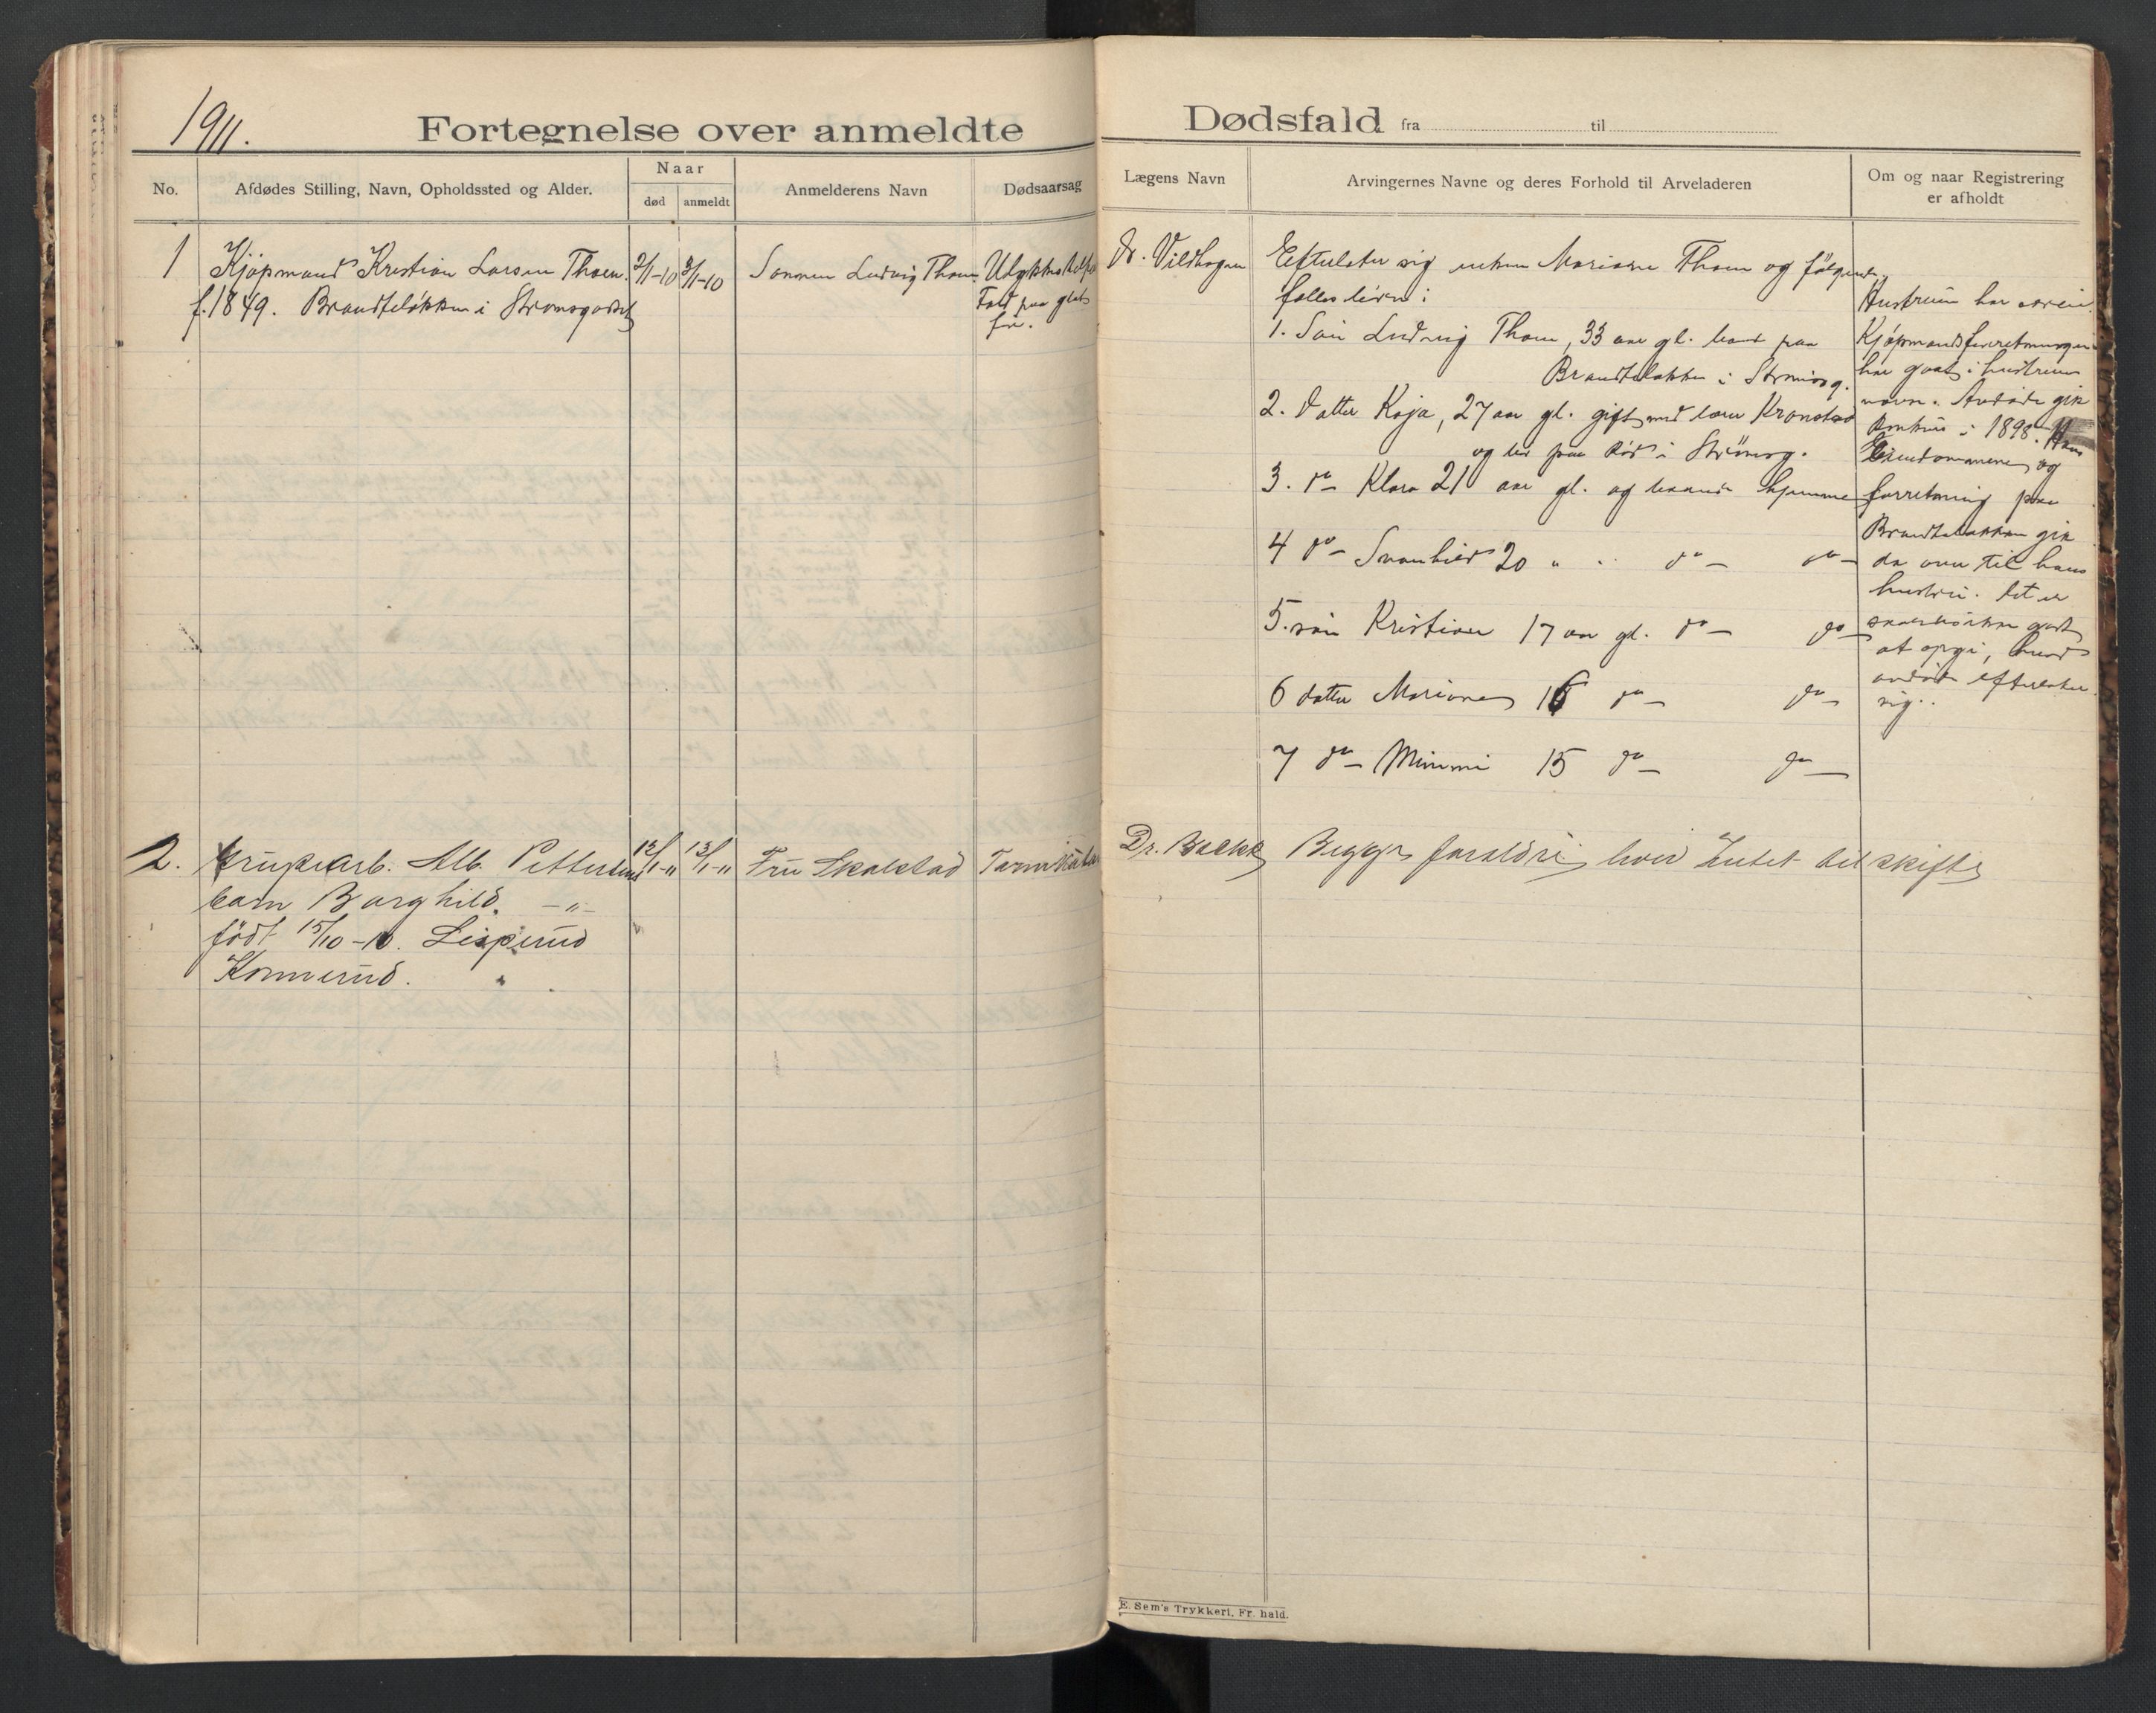 1911.
Fortegnelse over anmeldte
Dødsfald fra til
No.
Afdødes Stilling, Navn, Opholdssted og Alder.
Naar
død
anmeldt
Anmelderens Navn
Dødsaarsag
Lægens Navn
Arvingernes Navne og deres Forhold til Arveladeren
Om og naar Registrering
er afholdt
1
Kjøpmand Kristian Larsen Thoen.
f. 1849. Brandteløkken i Strømsgodset
2/1-10
3/1-10
Sønnen Ludvig Thoen
Fald paa glat
føre.
Dr. Vildhagen
Efterlater sig enken Mariane Thoen og følgende
fælles børn:
1. Søn Ludvig Thoen, 33 aar gl. boende paa
Brandteløkken i Strømsg.
2. Datter Kaja, 27 aar gl. gift med Kronstad
og bor paa i Strømsg.
3. do Klara 21 aar gl. og boende hjemme
4 do Svanhild 20 " " do do
5. søn Kristian 17 aar gl. do do
6 datter Mariane 16 do do
7 do Mimmi 15 do do
Hustruen har
Kjøpmandsforretningen
har gaat i hustruens
navn. Avdøde gik
konkurs i 1898. Hans
Eiendommene og
forretning paa
Brandteløkken gik
da over til hans
hustru. Det er
godt
at opgi, hvad
avdøde efterlater
sig.
2.
Brukarb. Alb. Pettersens
barn Borghild. -"-
født 15/10-10. Leirperud
Konnerud.
12/1-11
13/1-11
Fru Skalstad
Tarmkatar
Dr. Backe
Begge forældre lever Intet til skifte
E. Sem's Trykkeri, Fr. hald.